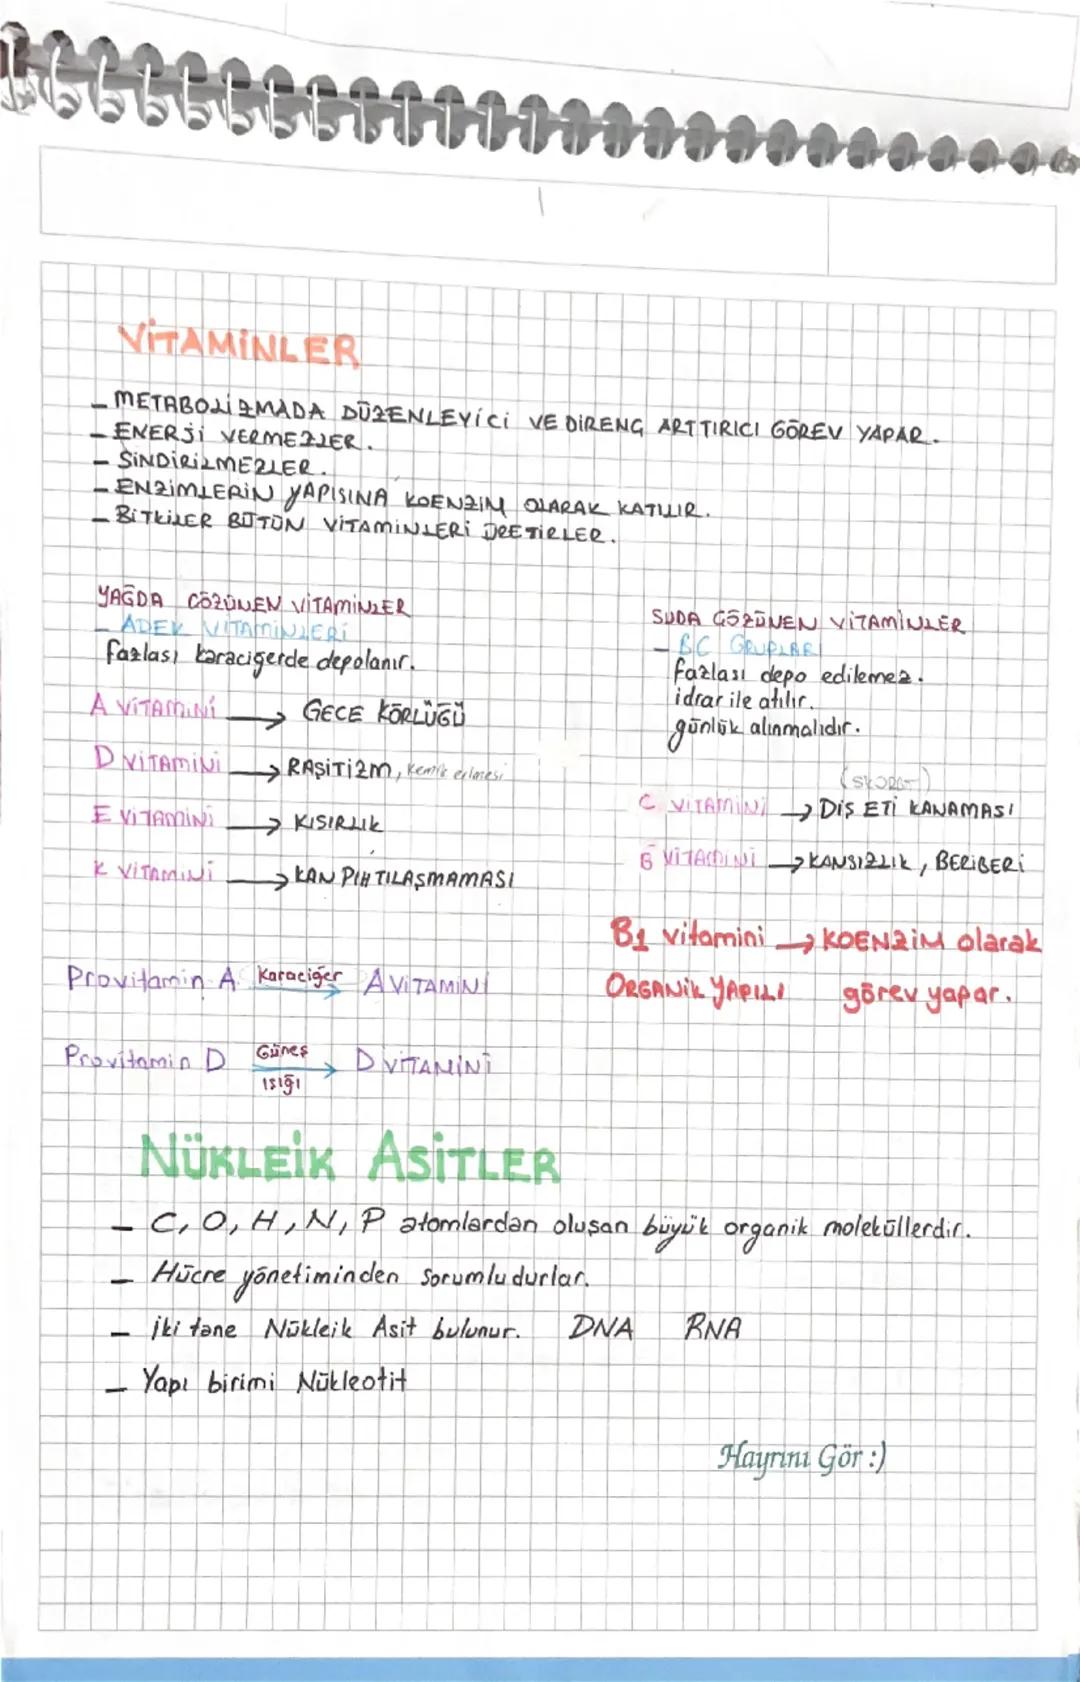 VİTAMİNLER
- METABOLİZMADA DÜZENLEYİCİ VE DİRENÇ ARTTIRICI GÖREV YAPAR.
- ENERJİ VERMEZLER.
- SİNDİRİLMEZLER.
- ENZİMLERİN YAPISINA KOENZİM OLARAK KATILIR.
- BİTKİLER BÜTÜN VİTAMİNLERİ ÜRETİRLER.
YAĞDA ÇÖZÜNEN VİTAMİNLER
- ADEK VİTAMİNLERİ
fazlası karaciğerde depolanır.
A VİTAMİNİ → GECE KÖRLÜĞÜ
D VİTAMİNİ → RAŞİTİZM, kemik erimesi
E VİTAMİNİ → KISIRLIK
K VİTAMİNİ → KAN PIHTILAŞMAMASI
SUDA ÇÖZÜNEN VİTAMİNLER
- BC GRUPLARI
fazlası depo edilemez.
idrar ile atılır.
günlük alınmalıdır.
(SKORBÜT)
C VİTAMİNİ → DİŞ ETİ KANAMASI
B VİTAMİNİ → KANSIZLIK, BERİBERİ
B1 vitamini → KOENZİM olarak
ORGANİK YAPILI görev yapar.
Provitamin A Karaciğer → A VİTAMİNİ
Provitamin D Güneş ışığı → D VİTAMİNİ
NÜKLEİK ASİTLER
- C, O, H, N, P atomlardan oluşan büyük organik moleküllerdir.
- Hücre yönetiminden sorumludurlar.
- İki tane Nükleik Asit bulunur. DNA RNA
- Yapı birimi Nükleotit
Hayrını Gör :)